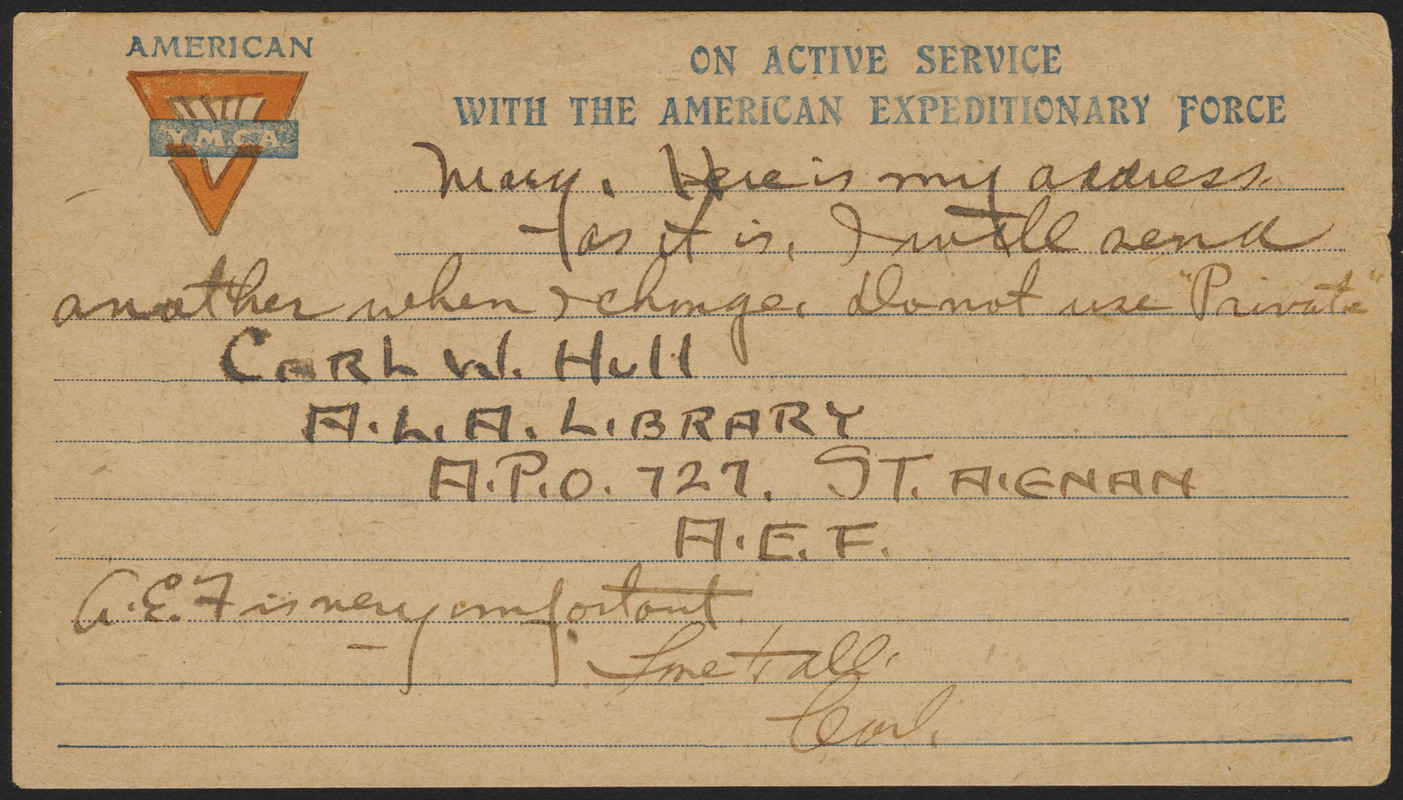 AMERICAN
YMCA
ON ACTIVE SERVICE
WITH THE AMERICAN EXPEDITIONARY FORCE
Mary. Here is my address
as it is. I will send
another when I change. Do not use "Private"
CARL W. HULL
A.L.A. LIBRARY
A.P.O. 727. ST. AIGNAN
A.E.F.
A.E.F is very important.
Love to all.
Carl.